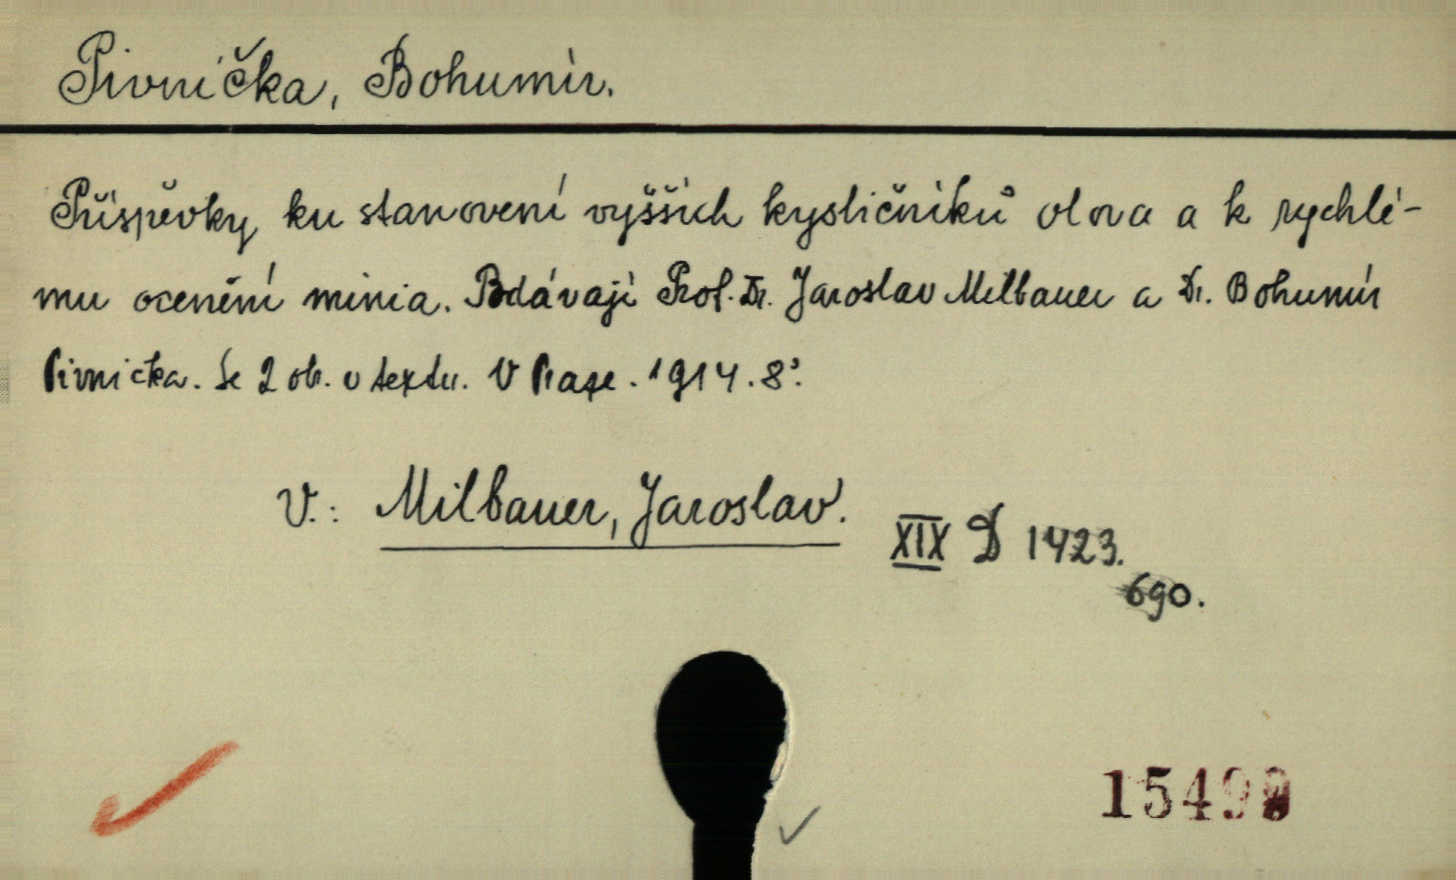 Pivnička, Bohumír.
Příspěvky ku stanovení vyšších kysličníků olova a k rychlé-
mu ocenění minia. Podávají Prof. Dr. Jaroslav Milbauer a Dr. Bohumír
Pivnicka. Se 2 obr. v textu. V Praze. 1914. 8°.
V.: Milbauer, Jaroslav.
XIX D 1423.
690.